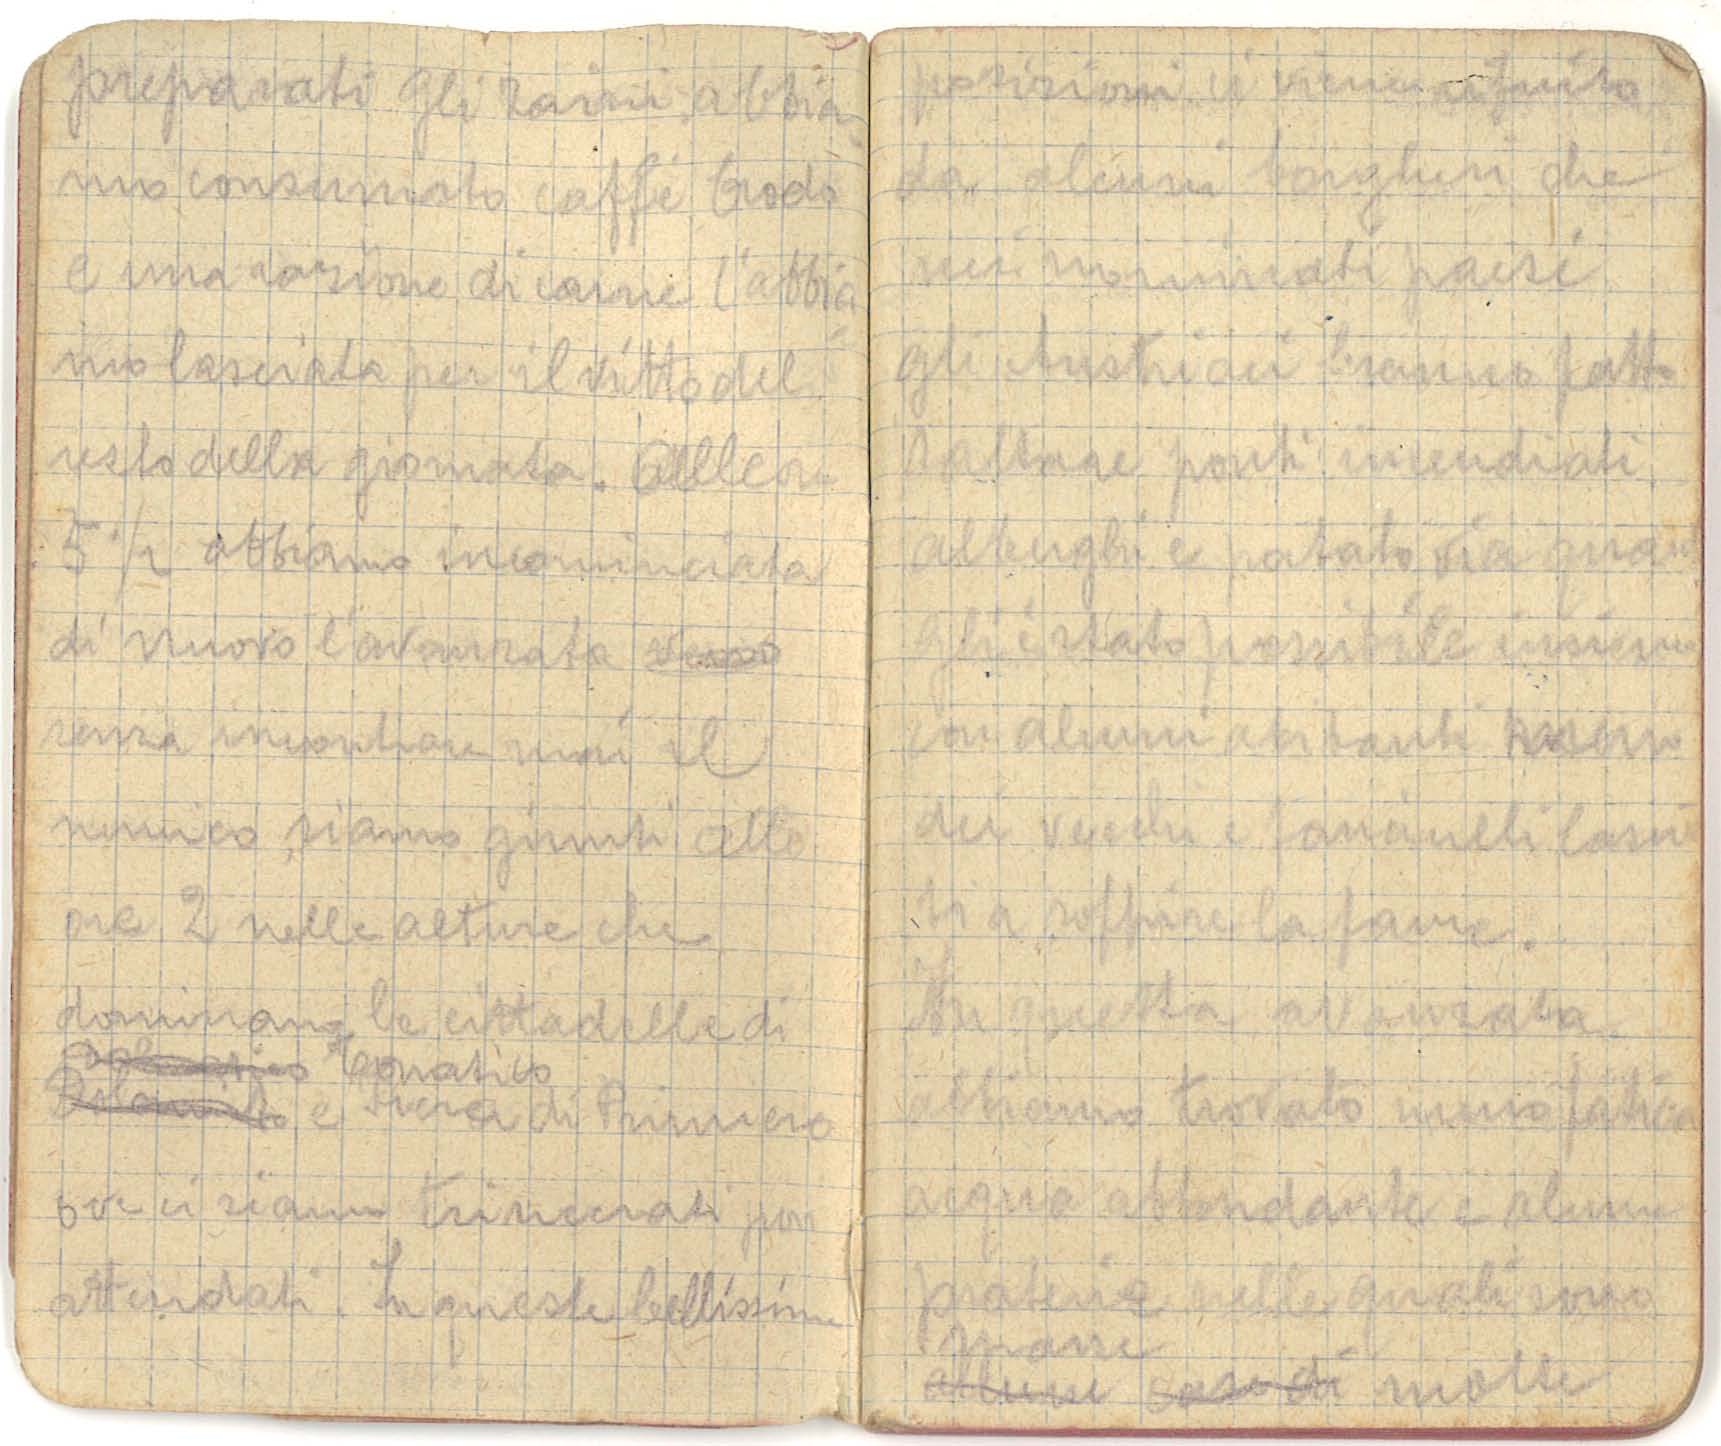 preparati gli zaini abbia
mo consumato caffé brodo
e una razione di carne l'abbia
mo lasciata per il vitto del
resto della giornata. Alle ore
5 1/2 abbiamo incominciata
di nuovo l'avanzata verso
senza incontrare mai il
nemico, siamo giunti alle
ore 2 nelle alture che
dominano le cittadelle di
Tonatico
e Fiera di Primiero
ove ci siamo trincerati poi
attendati. In queste bellissime
posizioni ci viene
da alcuni borghesi che
nei nominati paesi
gli Austriaci hanno fatto
saltare ponti incendiati
alberghi e portato via quan
gli è stato possibile insieme
con alcuni abitanti
dei vecchi e fanciulli lascia
ti a soffrire la fame.
In questa avanzata
abbiamo trovato meno fatica
acqua abbondante e alcune
praterie nelle quali sono
sparse
alcuni case di molte